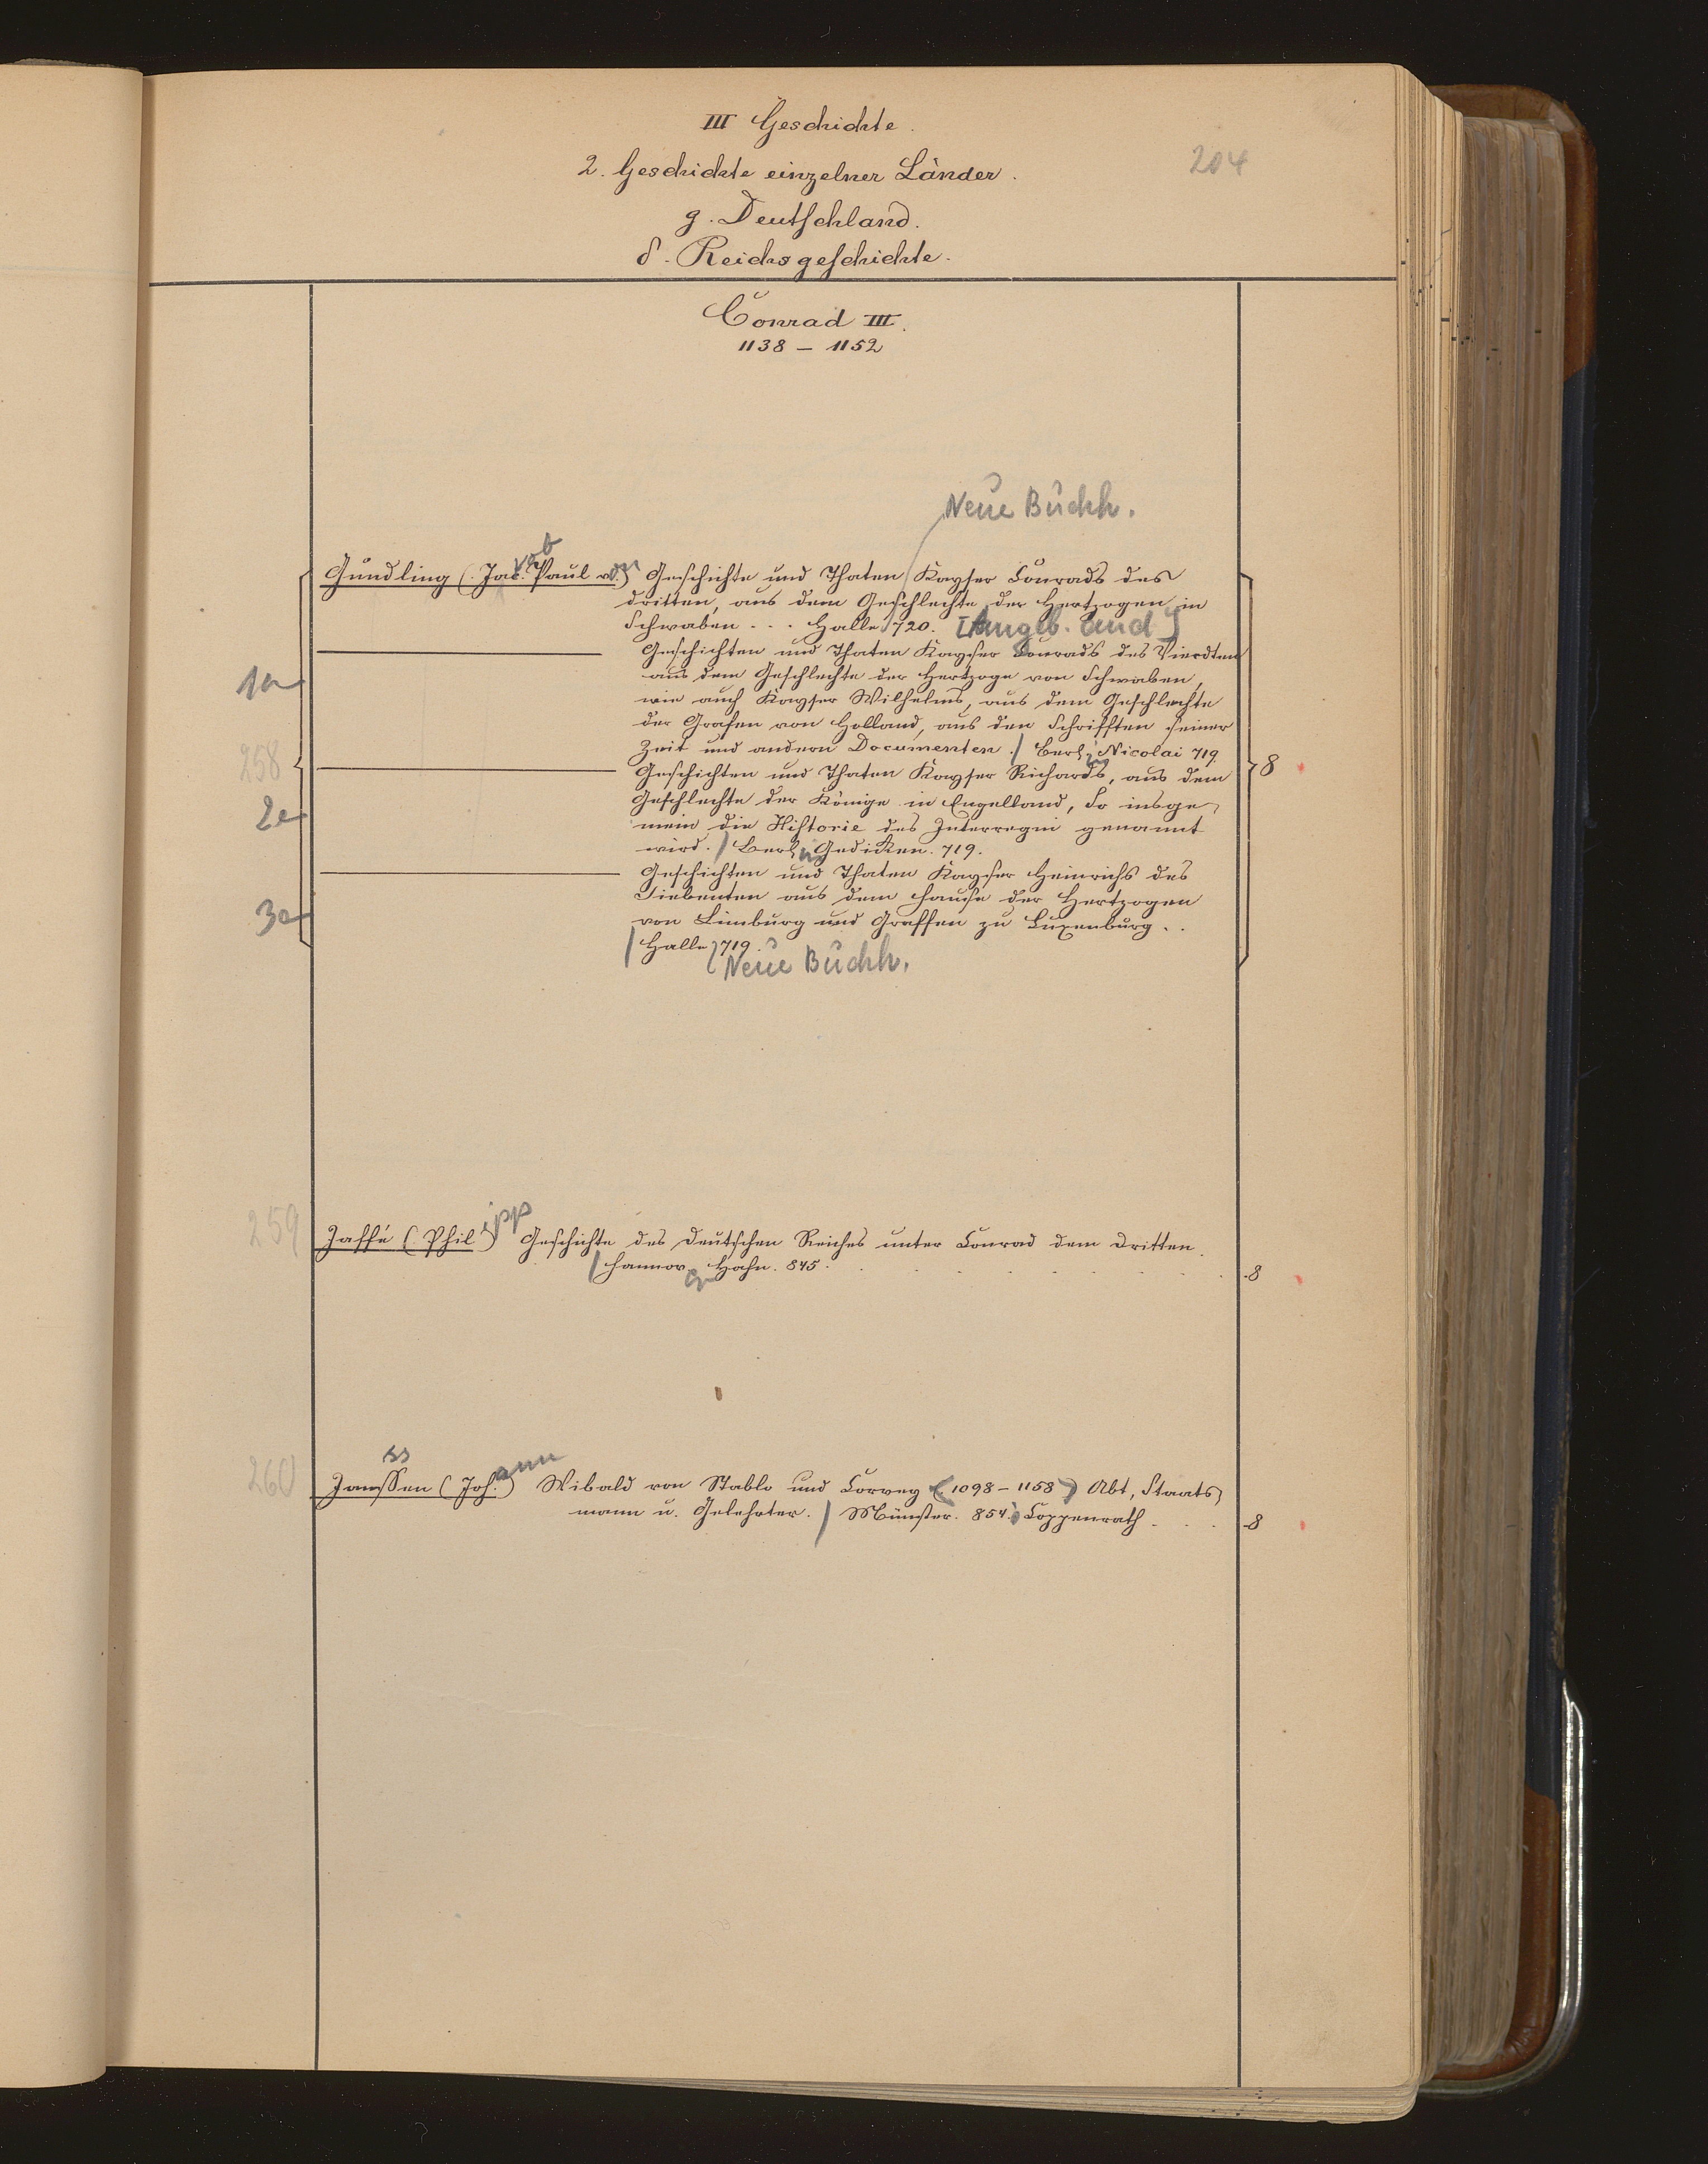 III Geschichte.
204
2. Geschichte einzelner Länder.
g. Deutschland.
δ. Reichsgeschichte.
Conrad III.
1138 – 1152
Neue Buchh.
Gundling (Jac. Paul v.) Geschichte und Thaten Kayser Conrads des
dritten, aus dem Geschlechte der Hertzogen in
Schwaben . . . Halle 720. [Angeb. and]
Geschichten und Thaten Kayser Conrads des Vierdten
1a
aus dem Geschlechte der Hertzoge von Schwaben,
wie auch Kayser Wilhelms, aus dem Geschlechte
der Grafen von Holland, aus den Schrifften seiner
258
Zeit und andern Documenten. / Berlin Nicolai 719.
8
Geschichten und Thaten Kayser Richards, aus dem
Geschlechte der Könige in Engelland, So insge-
2a
mein die Historie des Interregni genannt
wird. / Berlin Gedicken. 719.
Geschichten und Thaten Kayser Heinrichs des
Siebenten aus dem Hause der Hertzogen
3a
von Limburg und Graffen zu Luxenburg . .
/ Halle 719.
Neue Buchh.
259
Jaffé (Philipp) Geschichte des Deutschen Reiches unter Conrad dem Dritten.
/ Hannover Hahn. 845. . . . . . . . . 8
260
Janssen (Johann) Wibald von Stablo und Corvey (1098 – 1158) Abt, Staats-
mann u. Gelehrter. / Münster. 854. Coppenrath . . . 8